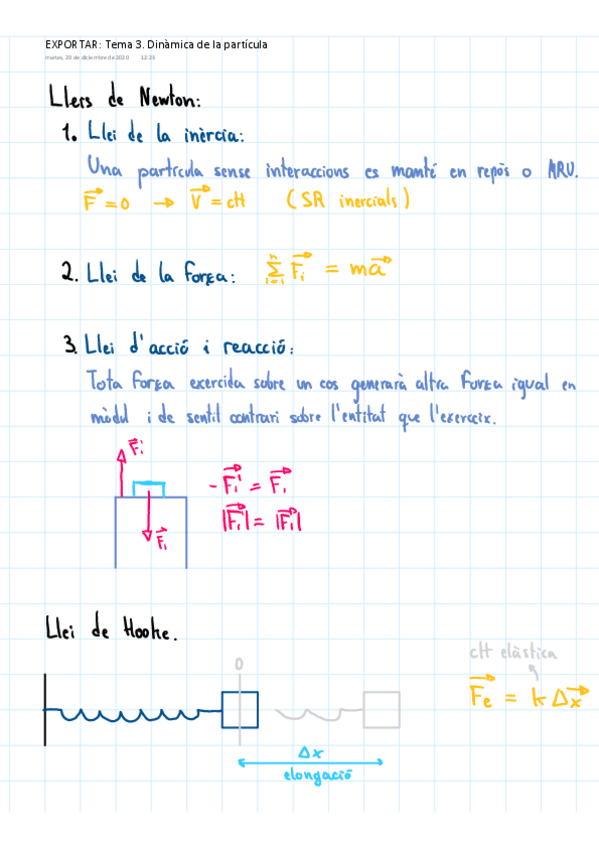 EXPORTAR: Tema 3. Dinàmica de la partícula
martes, 29 de diciembre de 2020 12:25
Lleis de Newton:
1. Llei de la inèrcia:
Una partícula sense interaccions es manté en repòs o MRU.
F⃗ = 0 → V⃗ = ctt (SR inercials)
2. Llei de la força: ∑ⁿᵢ₌₁ F⃗ᵢ = ma⃗
3. Llei d'acció i reacció:
Tota força exercida sobre un cos generarà altra força igual en
mòdul i de sentit contrari sobre l'entitat que l'exerceix.
F⃗₁'
-F⃗₁' = F⃗₁
|F⃗₁'| = |F⃗₁|
F⃗₁
Llei de Hooke.
ctt elàstica
0
F⃗e = k Δx⃗
Δx
elongació